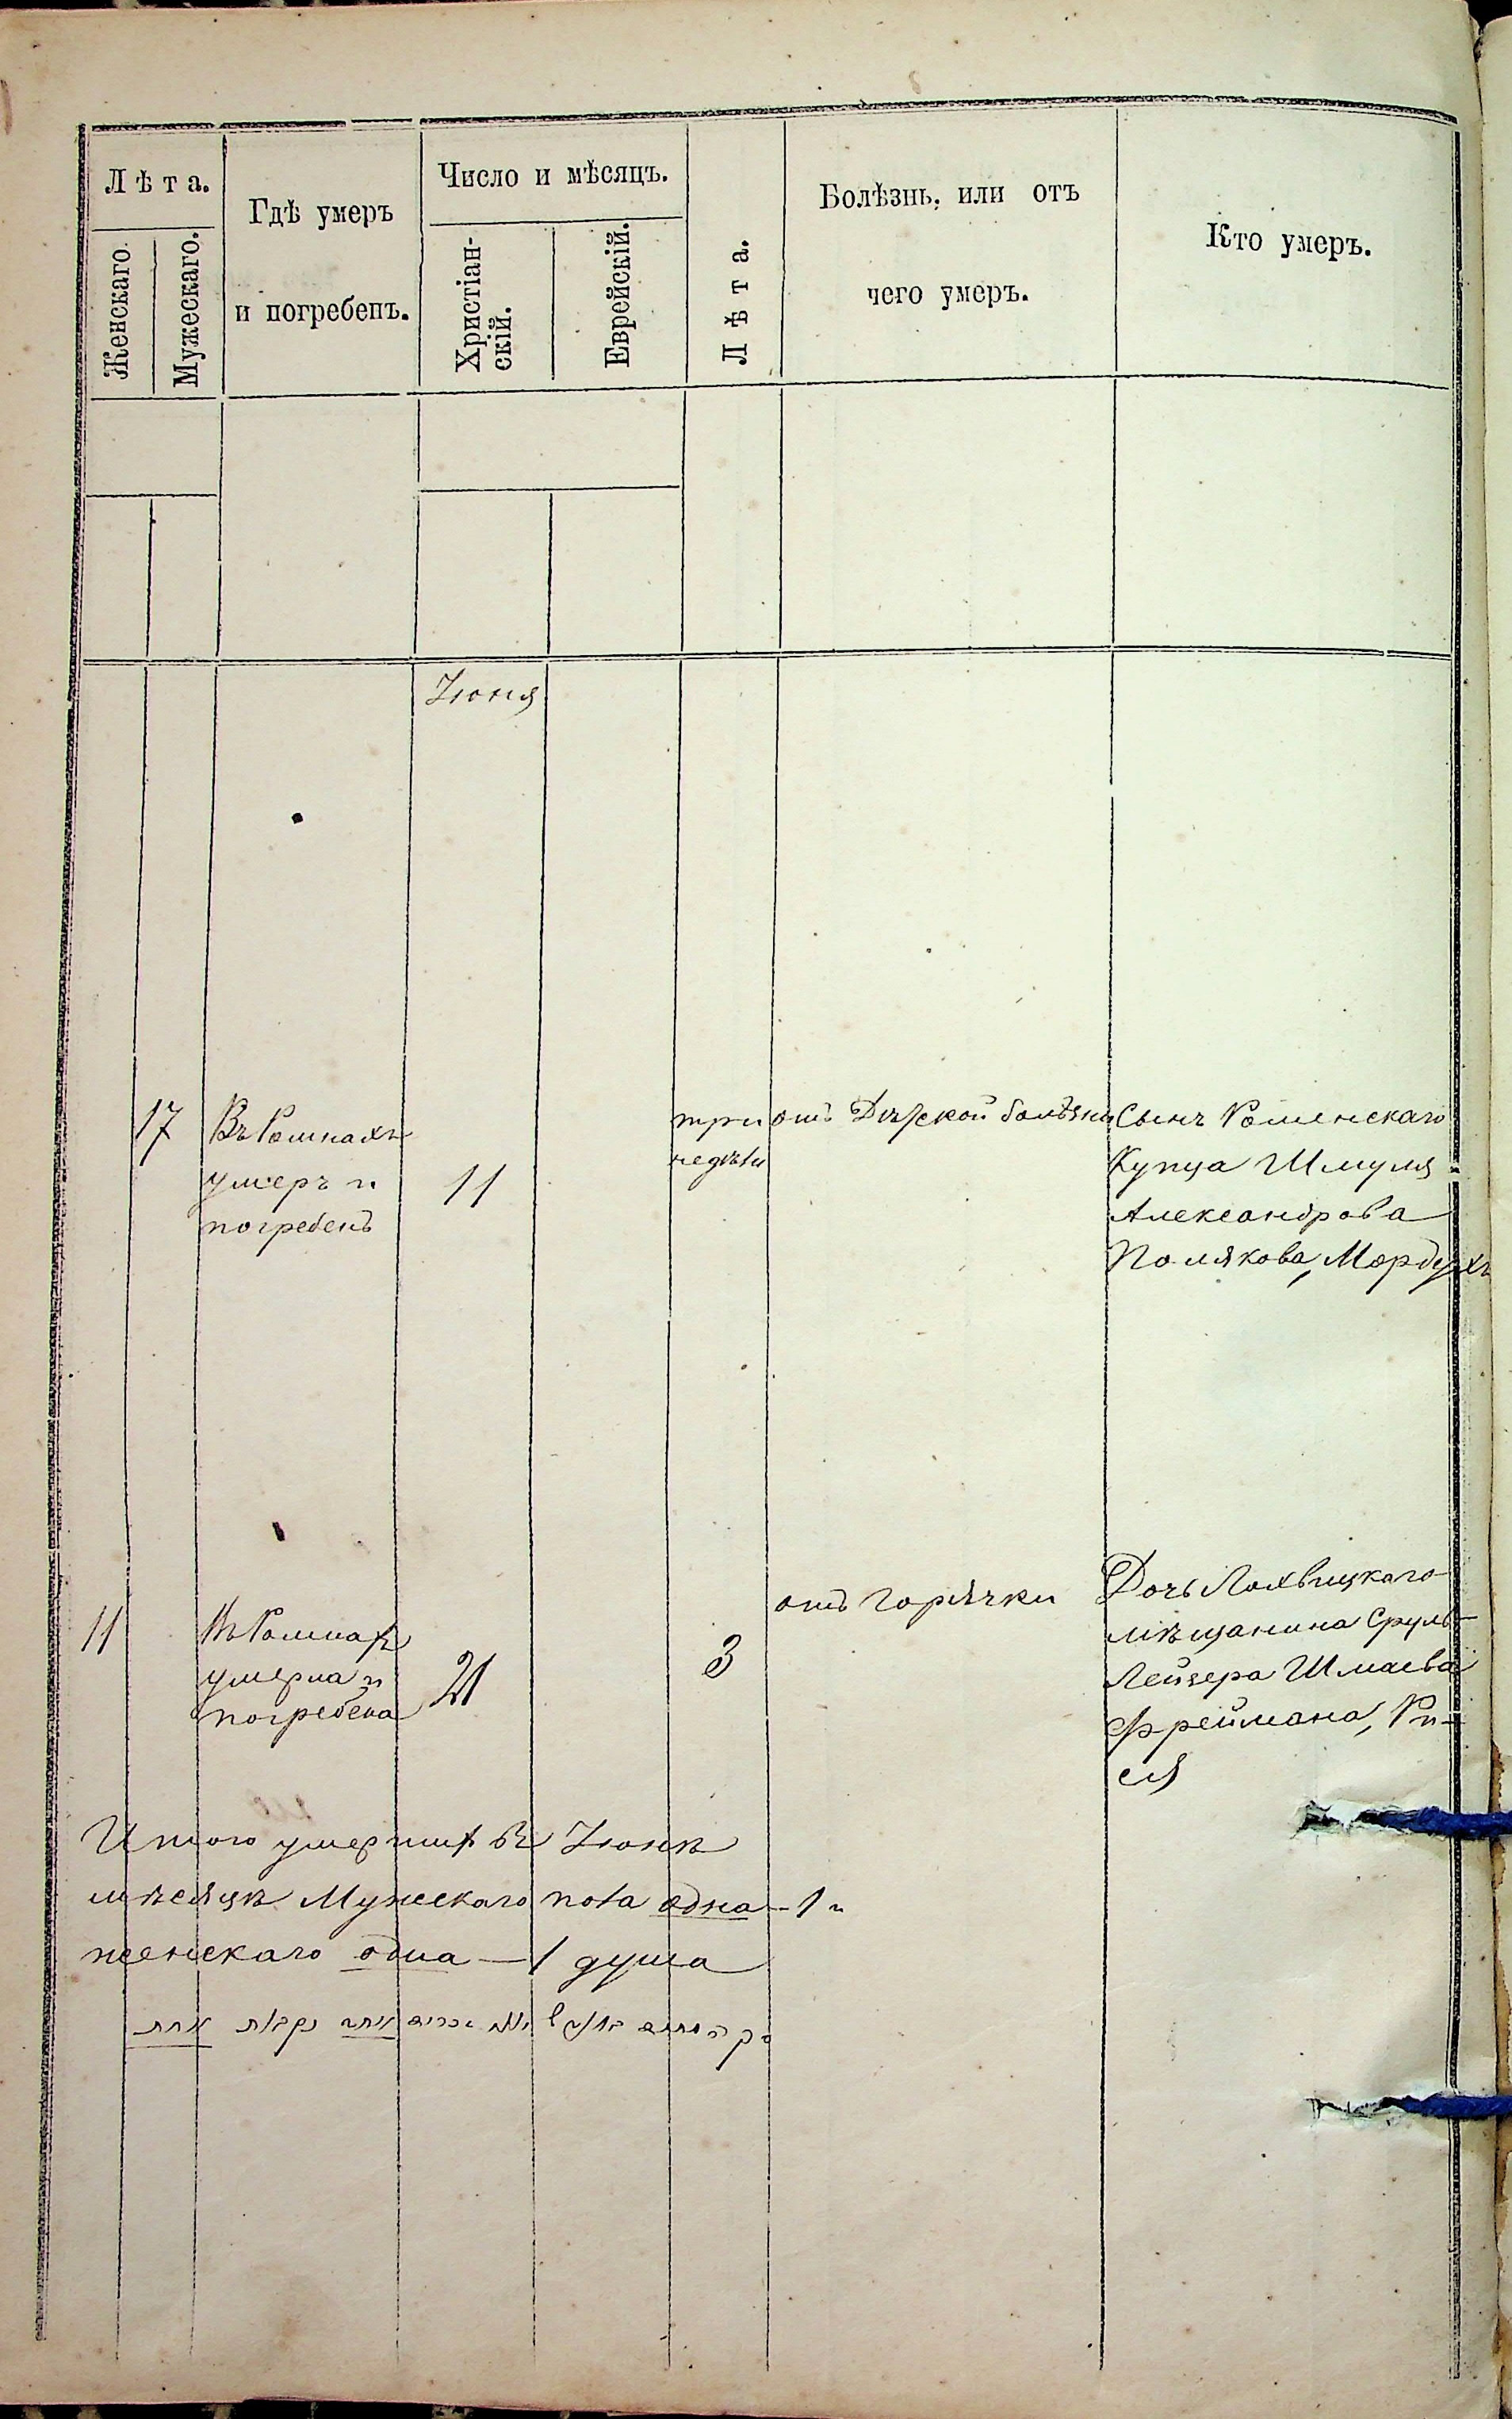 Лѣта.
Женскаго.
Мужескаго.
Гдѣ умеръ
и погребенъ.
Число и мѣсяцъ.
Христіан-
скій.
Еврейскій.
Лѣта.
Болѣзнь, или отъ
чего умеръ.
Кто умеръ.
Іюня
17
Въ Ромнахъ
умеръ и
погребенъ
11
три
недѣли
отъ Дѣтской болѣзни
Сынъ Роменскаго
Купца Шмуля
Александрова
Полякова, Мордухъ
11
Въ Ромнахъ
умерла и
погребена
21
3
отъ горячки
Дочь Лохвицкаго
мѣщанина Сруль
Лейзера Шмаева
Фреймана, Ри-
ся
Итого умершихъ въ Іюнѣ
мѣсяцѣ Мужескаго пола одна - 1 и
женскаго одна — 1 душа